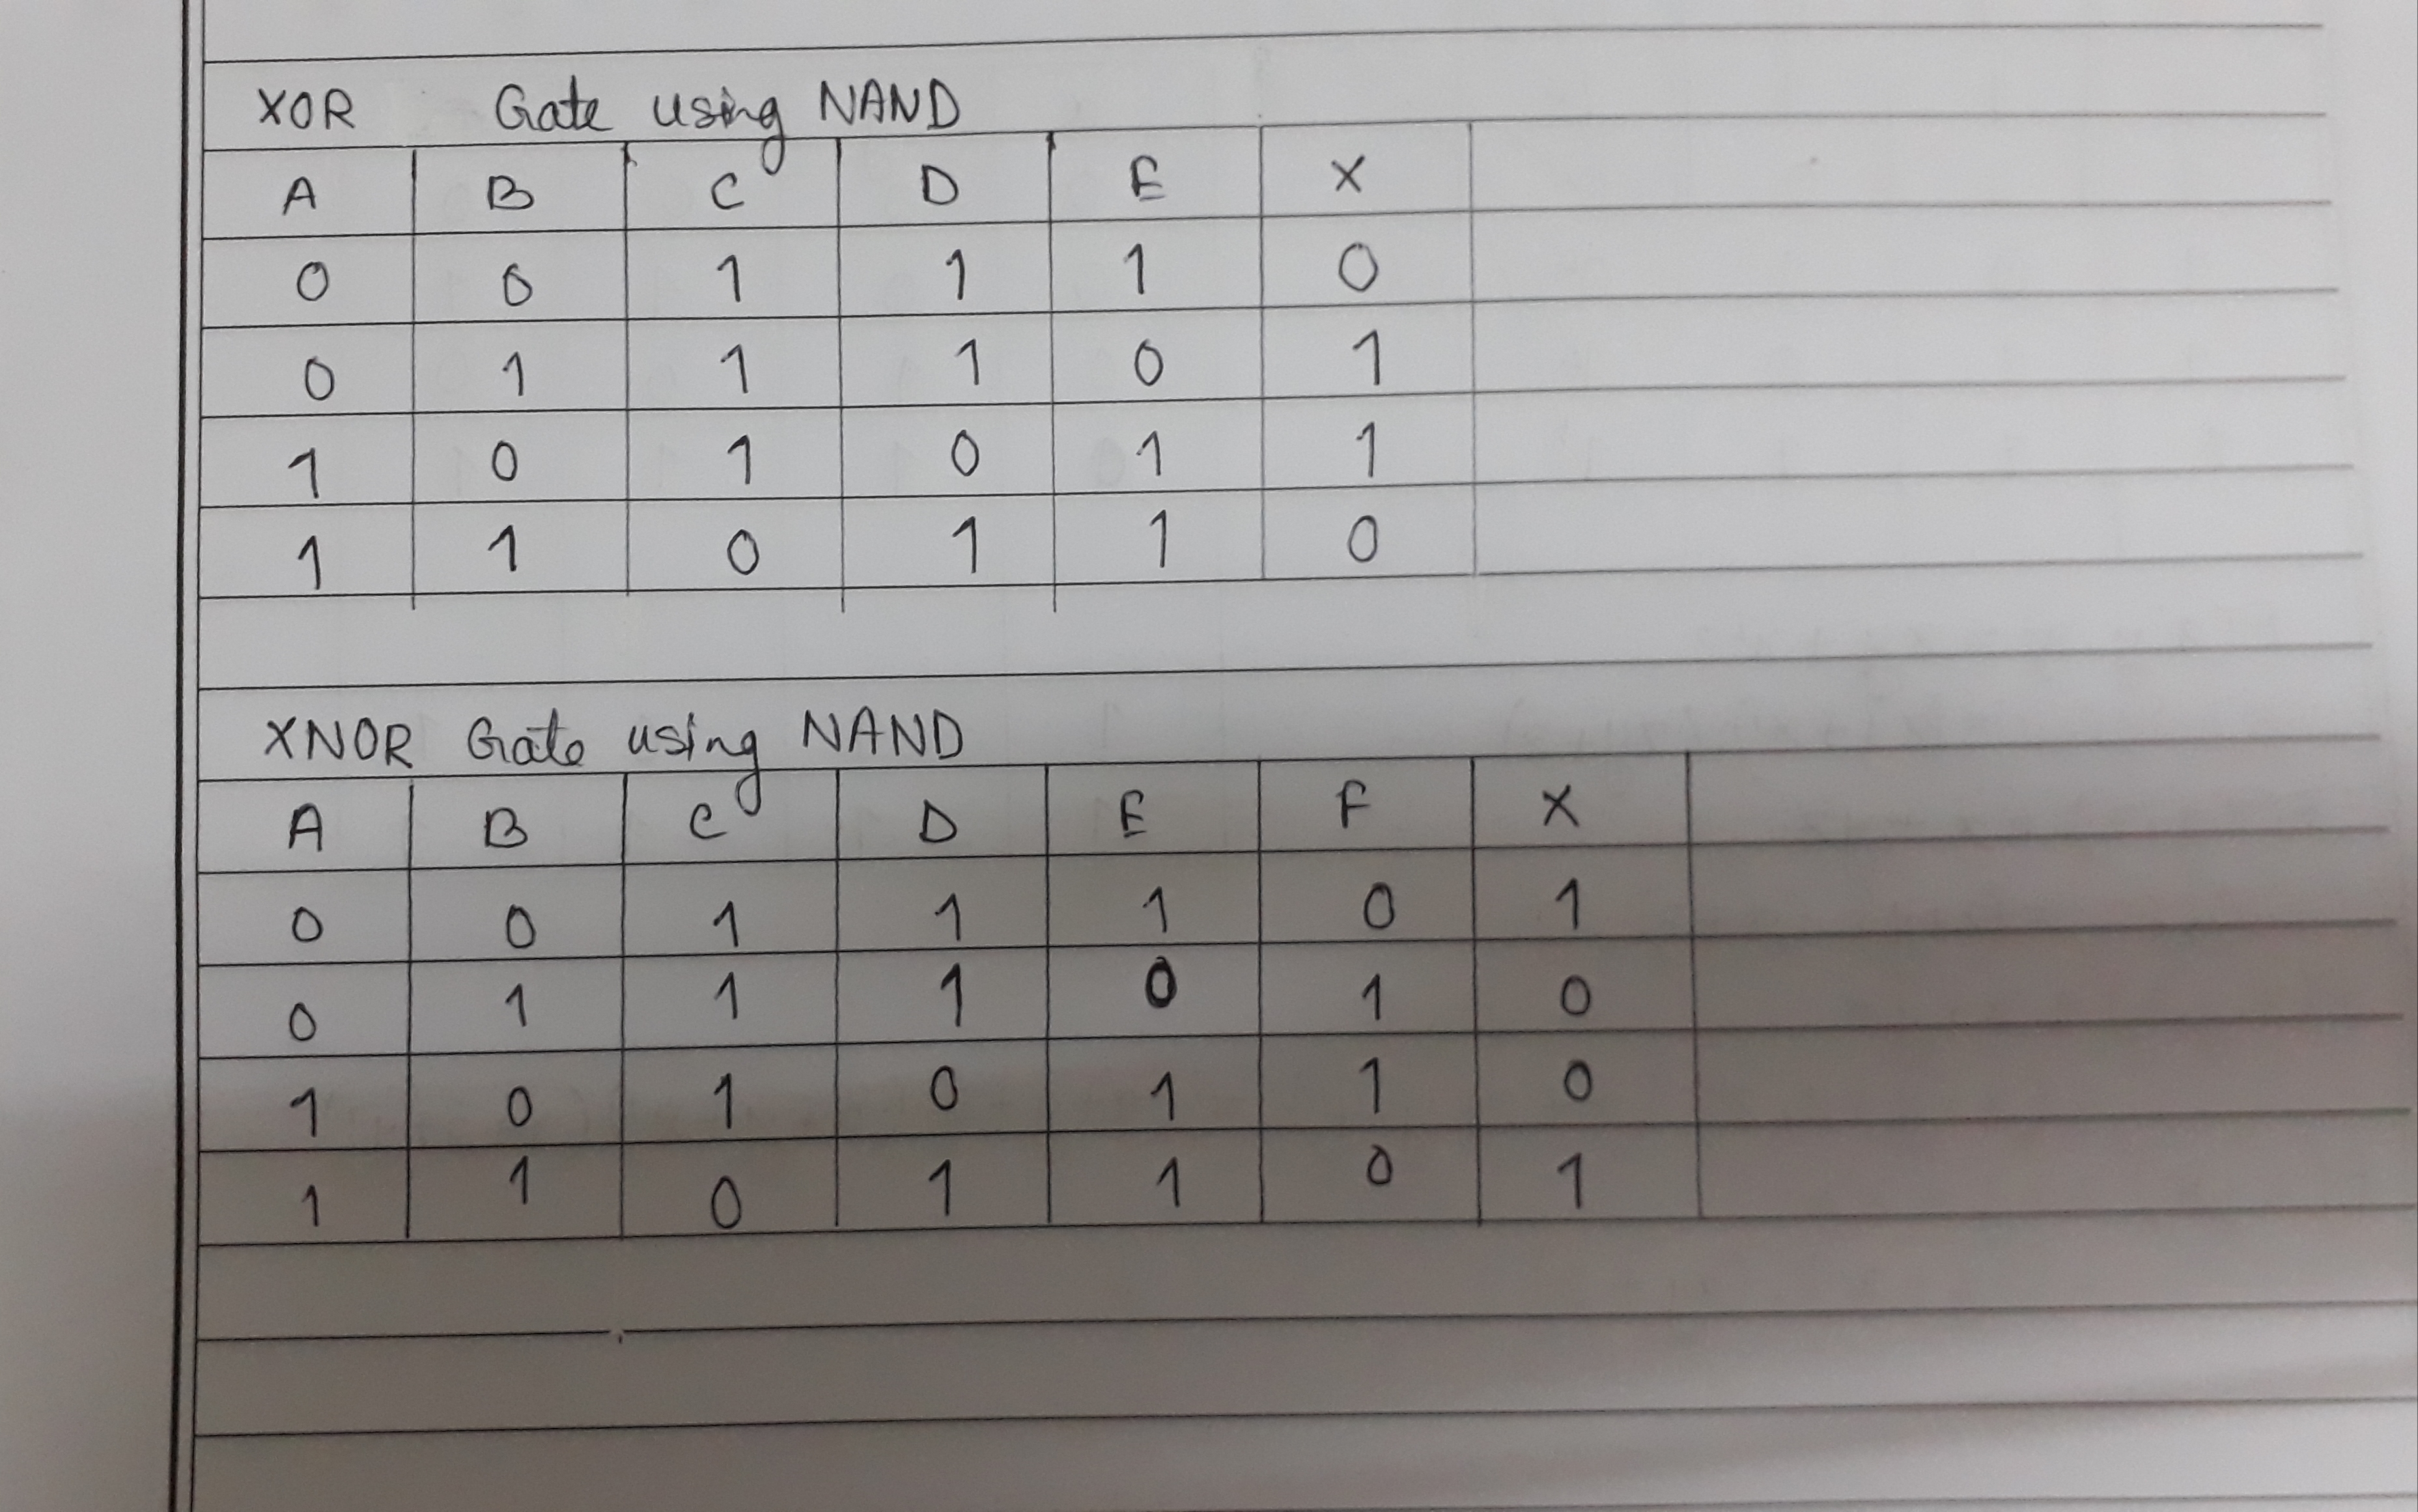 XOR Gate using NAND
A B C D E X
0 0 1 1 1 0
0 1 1 1 0 1
1 0 1 0 1 1
1 1 0 1 1 0
XNOR Gate using NAND
A B C D E F X
0 0 1 1 1 0 1
0 1 1 1 0 1 0
1 0 1 0 1 1 0
1 1 0 1 1 0 1